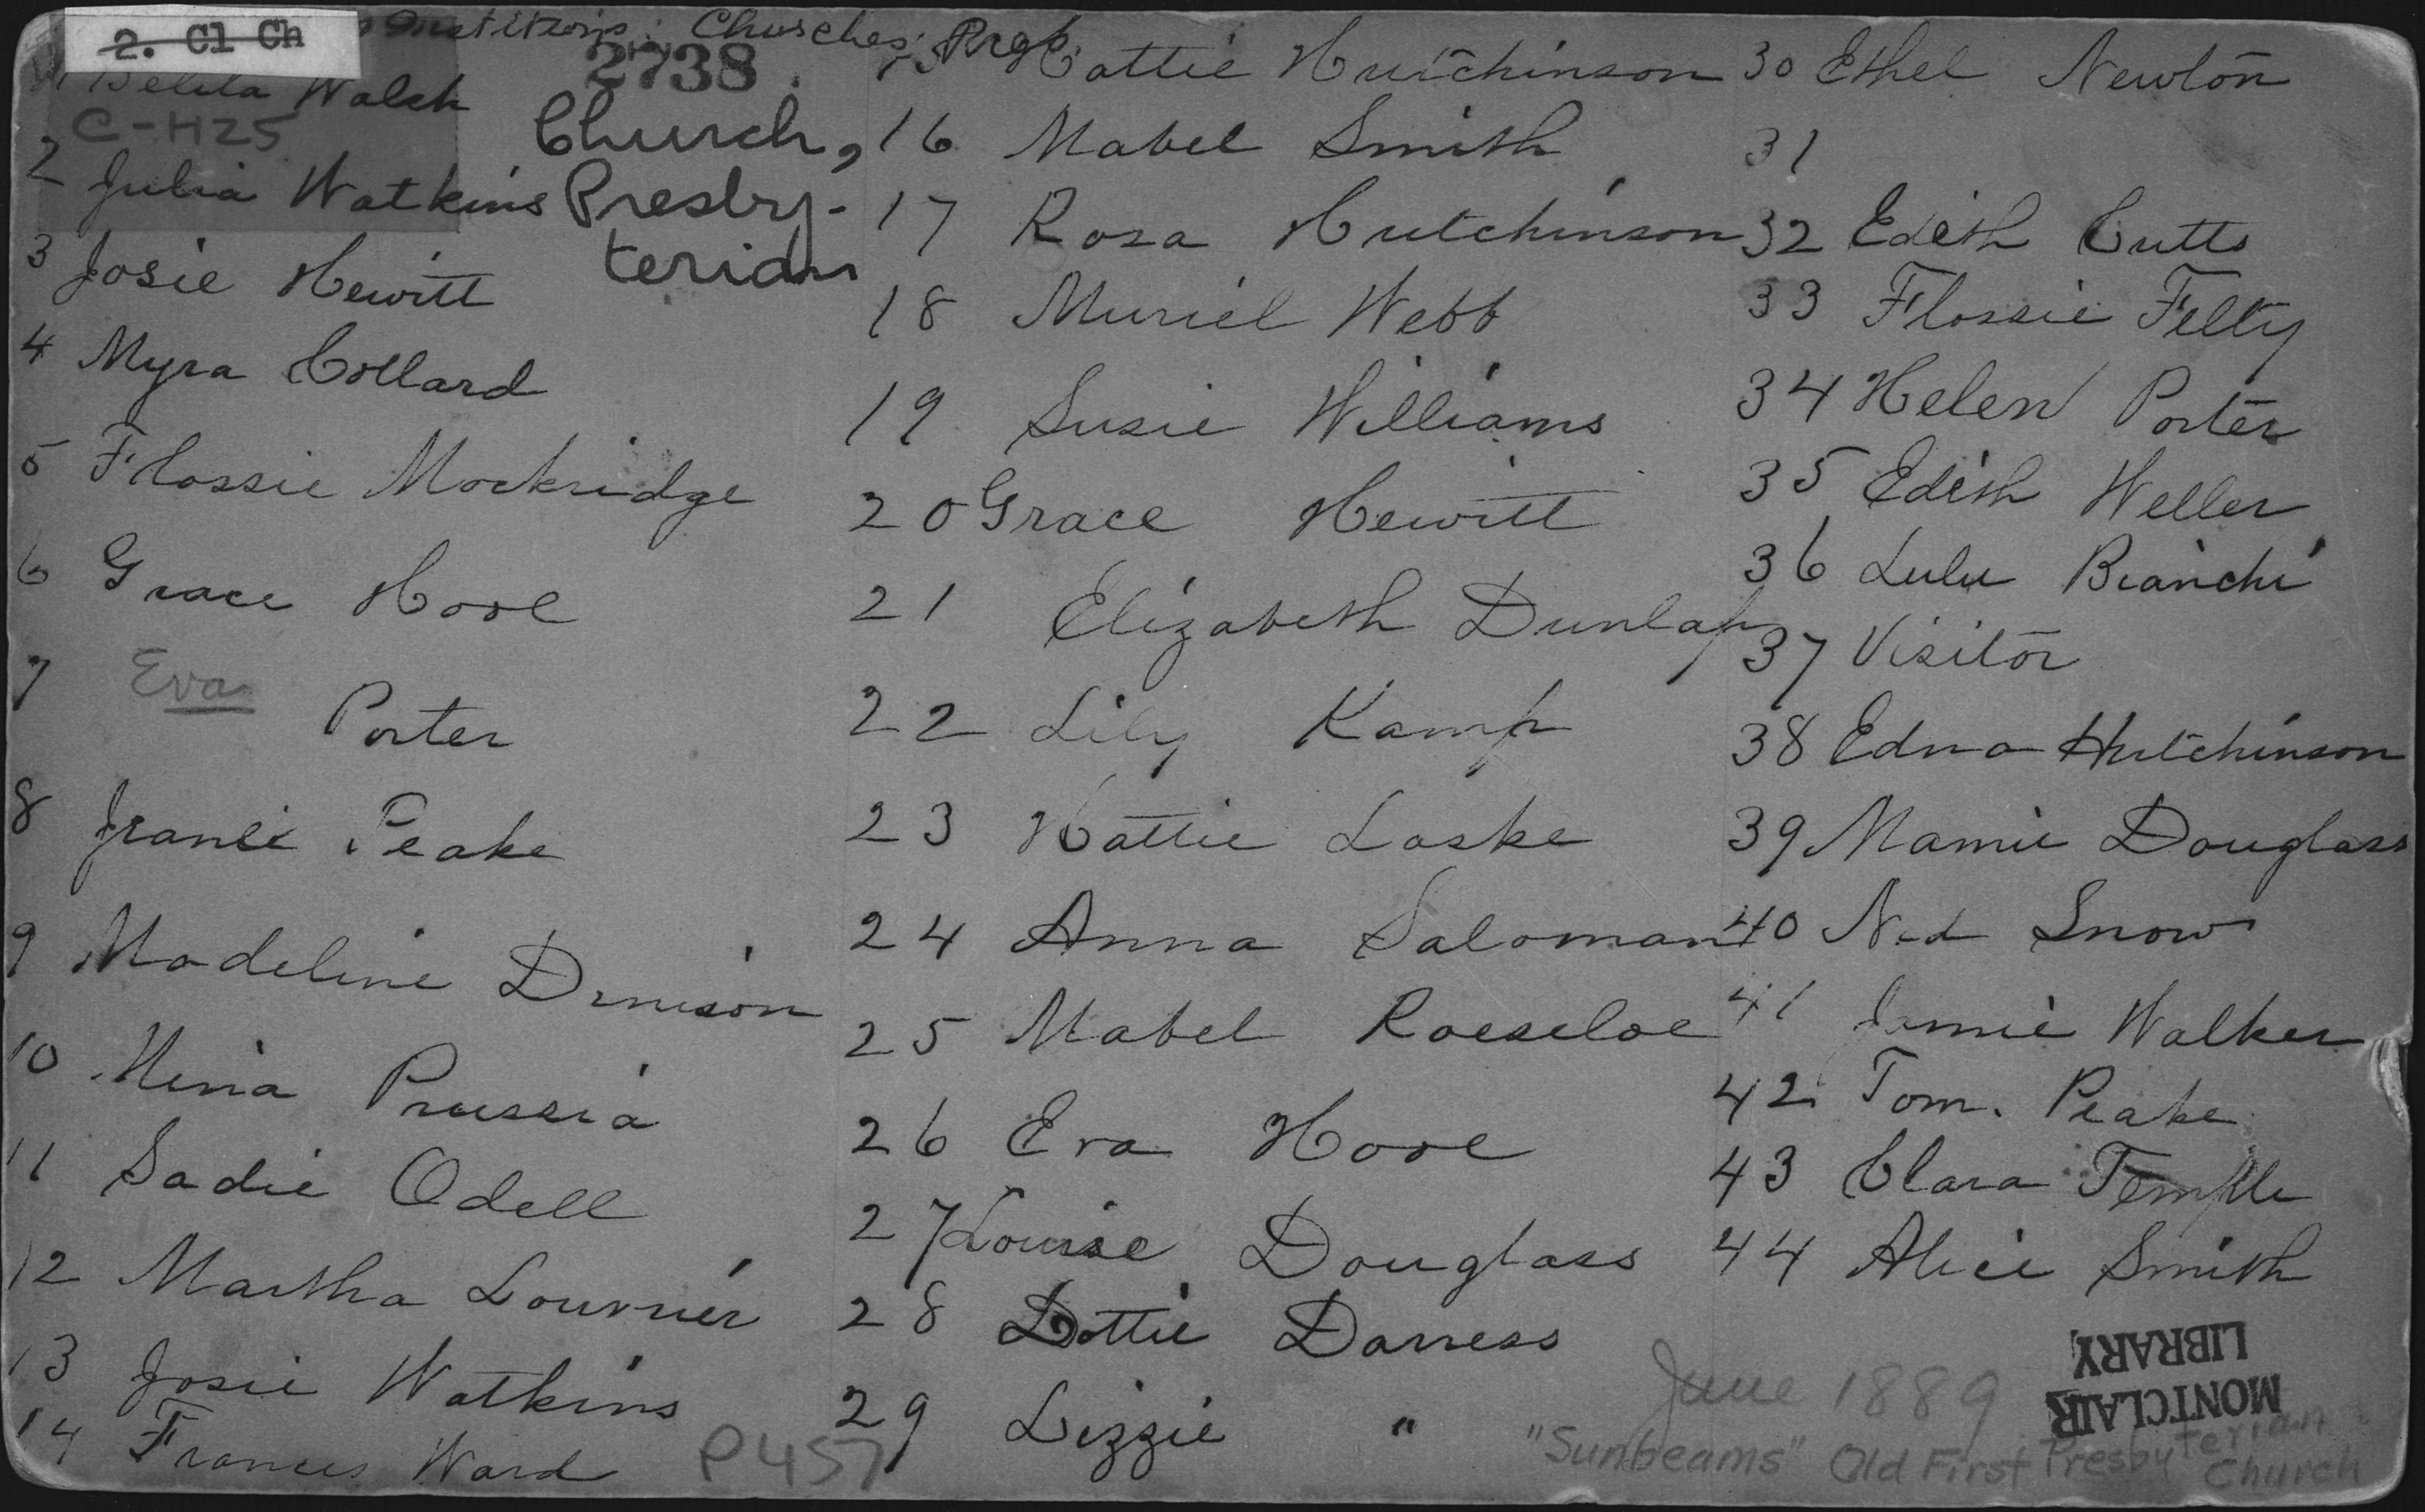 2. Cl Ch
Churches; Presb.
2738
Church,
Presby-
terian
C-H25
Walsh
2 Julia Watkins
3 Josie Hewitt
4 Myra Collard
5 Flossie Mockridge
6 Grace Hove
7 Eva Porter
8 Peake
9 Madeline Denison
10 Nina Prussia
11 Sadie Odell
12 Martha Lourrier
13 Josie Watkins
14 Frances Ward
P457
15 Hattie Hutchinson
16 Mabel Smith
17 Rosa Hutchinson
18 Muriel Webb
19 Susie Williams
20 Grace Hewitt
21 Elizabeth Dunlap
22 Lily Kamp
23 Hattie Laske
24 Anna Saloman
25 Mabel Roeseloe
26 Eva Hove
27 Louise Douglass
28 Lottie Darress
29 Lizzie "
30 Ethel Newton
31
32 Edith Cutts
33 Flossie Felty
34 Helen Porter
35 Edith Weller
36 Lulu Bianchi
37 Visitor
38 Edna Hutchinson
39 Mamie Douglass
40 Ned Snow
41 Jennie Walker
42 Tom. Peake
43 Clara Temple
44 Alice Smith
MONTCLAIR
LIBRARY
June 1889
"Sunbeams" Old First Presbyterian
Church